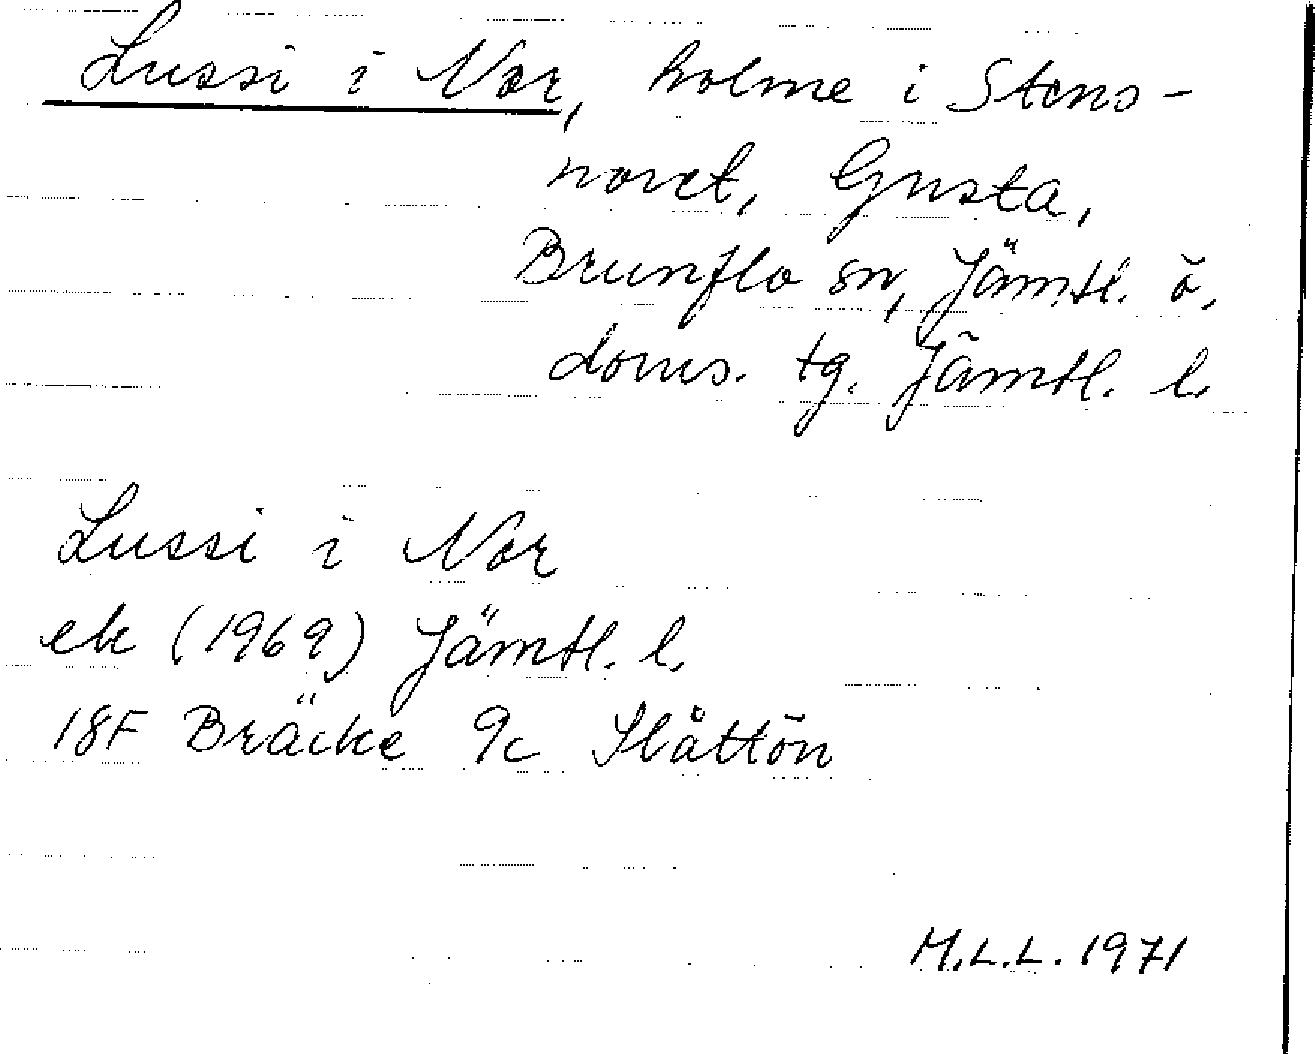 Lussi i Nor, holme i Stens-
noret, Gusta,
Brunflo sn, Jämtl. ö.
doms. tg. Jämtl. l.
Lussi i Nor
ek (1969) Jämtl. l.
18F Bräcke 9c Slåttön
M.L.L. 1971